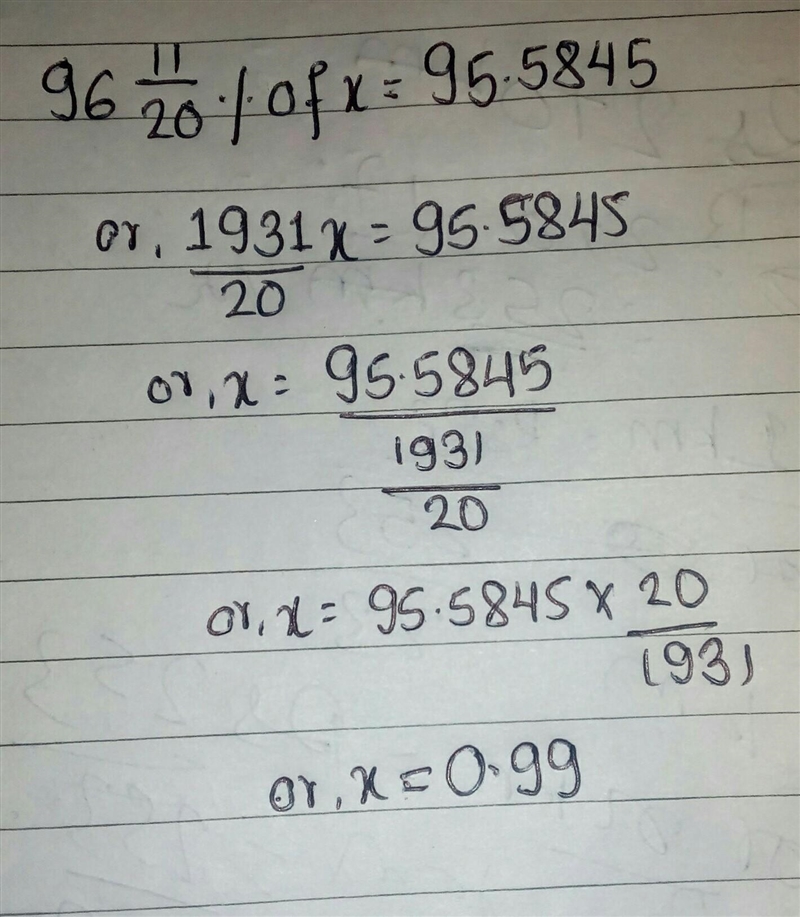 96 11/20 % of x = 95.5845
or, 1931/20 x = 95.5845
or, x = 95.5845 / (1931/20)
or, x = 95.5845 × 20/1931
or, x = 0.99